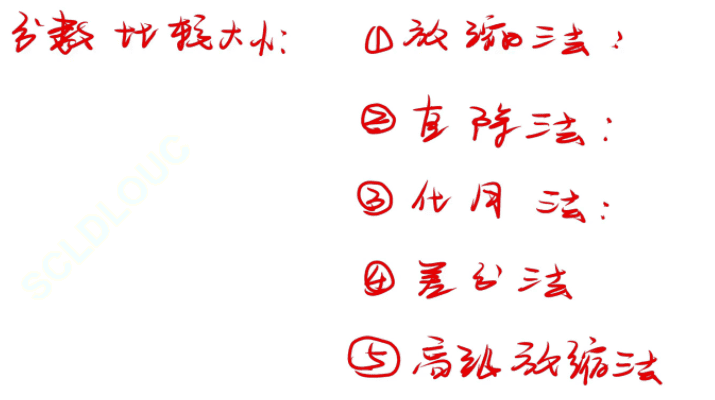 分数比较大小: ①放缩法:
②直除法:
③化同法:
④差分法
⑤高级放缩法
SCLDLOUC